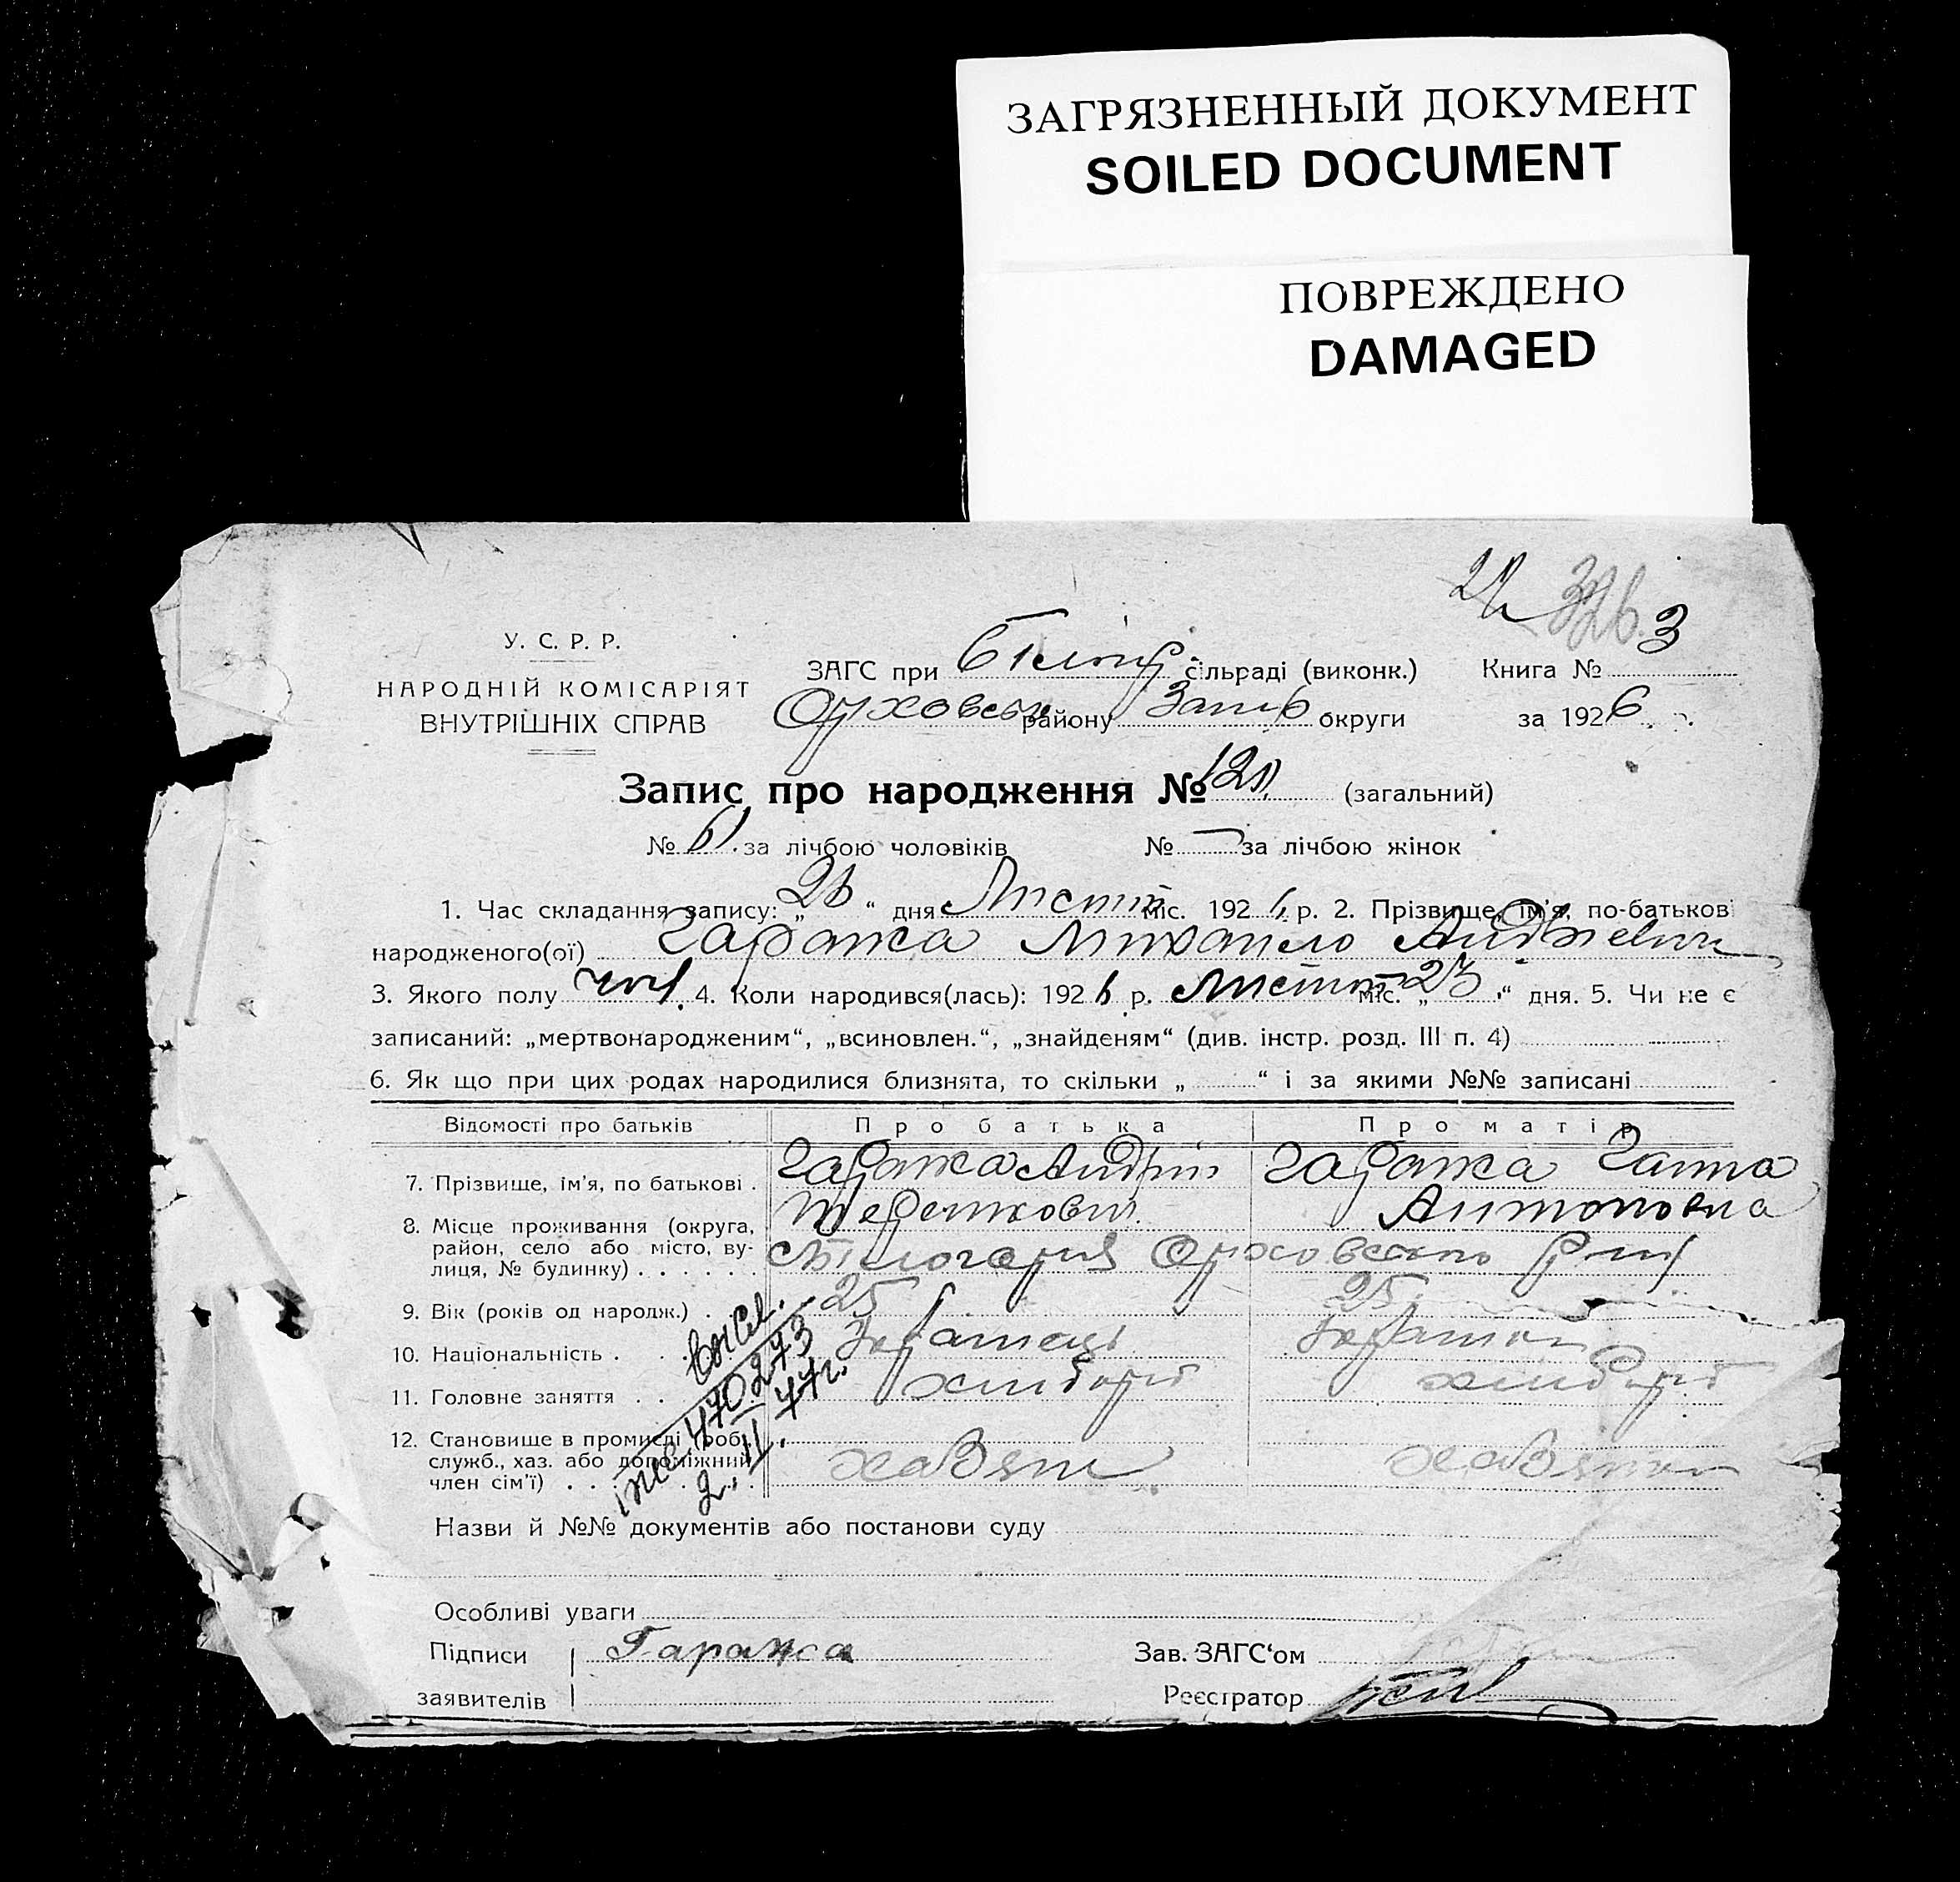 ЗАГРЯЗНЕННЫЙ ДОКУМЕНТ
SOILED DOCUMENT
ПОВРЕЖДЕНО
DAMAGED
326 3
У. С. Р. Р.
НАРОДНІЙ КОМІСАРІЯТ
ВНУТРІШНІХ СПРАВ
ЗАГС при сільраді (виконк.) Книга №
району Запор округи за 1926
Запис про народження № (загальний)
№ за лічбою чоловіків № за лічбою жінок
1. Час складання запису: „ “ дня Листоп міс. 1926 р. 2. Прізвище, ім'я, по-батькові
народженого(ої) Гаража Михайло Андрієвич
3. Якого полу чол. 4. Коли народився(лась): 1926 р. Листоп міс. „23“ дня. 5. Чи не є
записаний: „мертвонародженим“, „всиновлен.“, „знайденям“ (див. інстр. розд. III п. 4)
6. Як що при цих родах народилися близнята, то скільки „ “ і за якими №№ записані
Відомості про батьків Про батька Про матір
7. Прізвище, ім'я, по батькові . Гаража Андрій Гаража Ганна
Антоновна
8. Місце проживання (округа,
район, село або місто, ву-
лиця, № будинку) . . . . . .
9. Вік (років од народж.) . 25 25
10. Національність . Українець
11. Головне заняття . . хлібороб хлібороб
12. Становище в промислі (роб.,
служб., хаз. або допоміжний
член сім'ї) . . хазяїн
470273
2. II. 47г.
Назви й №№ документів або постанови суду
Особливі уваги
Підписи Гаража Зав. ЗАГС'ом
заявителів Реєстратор